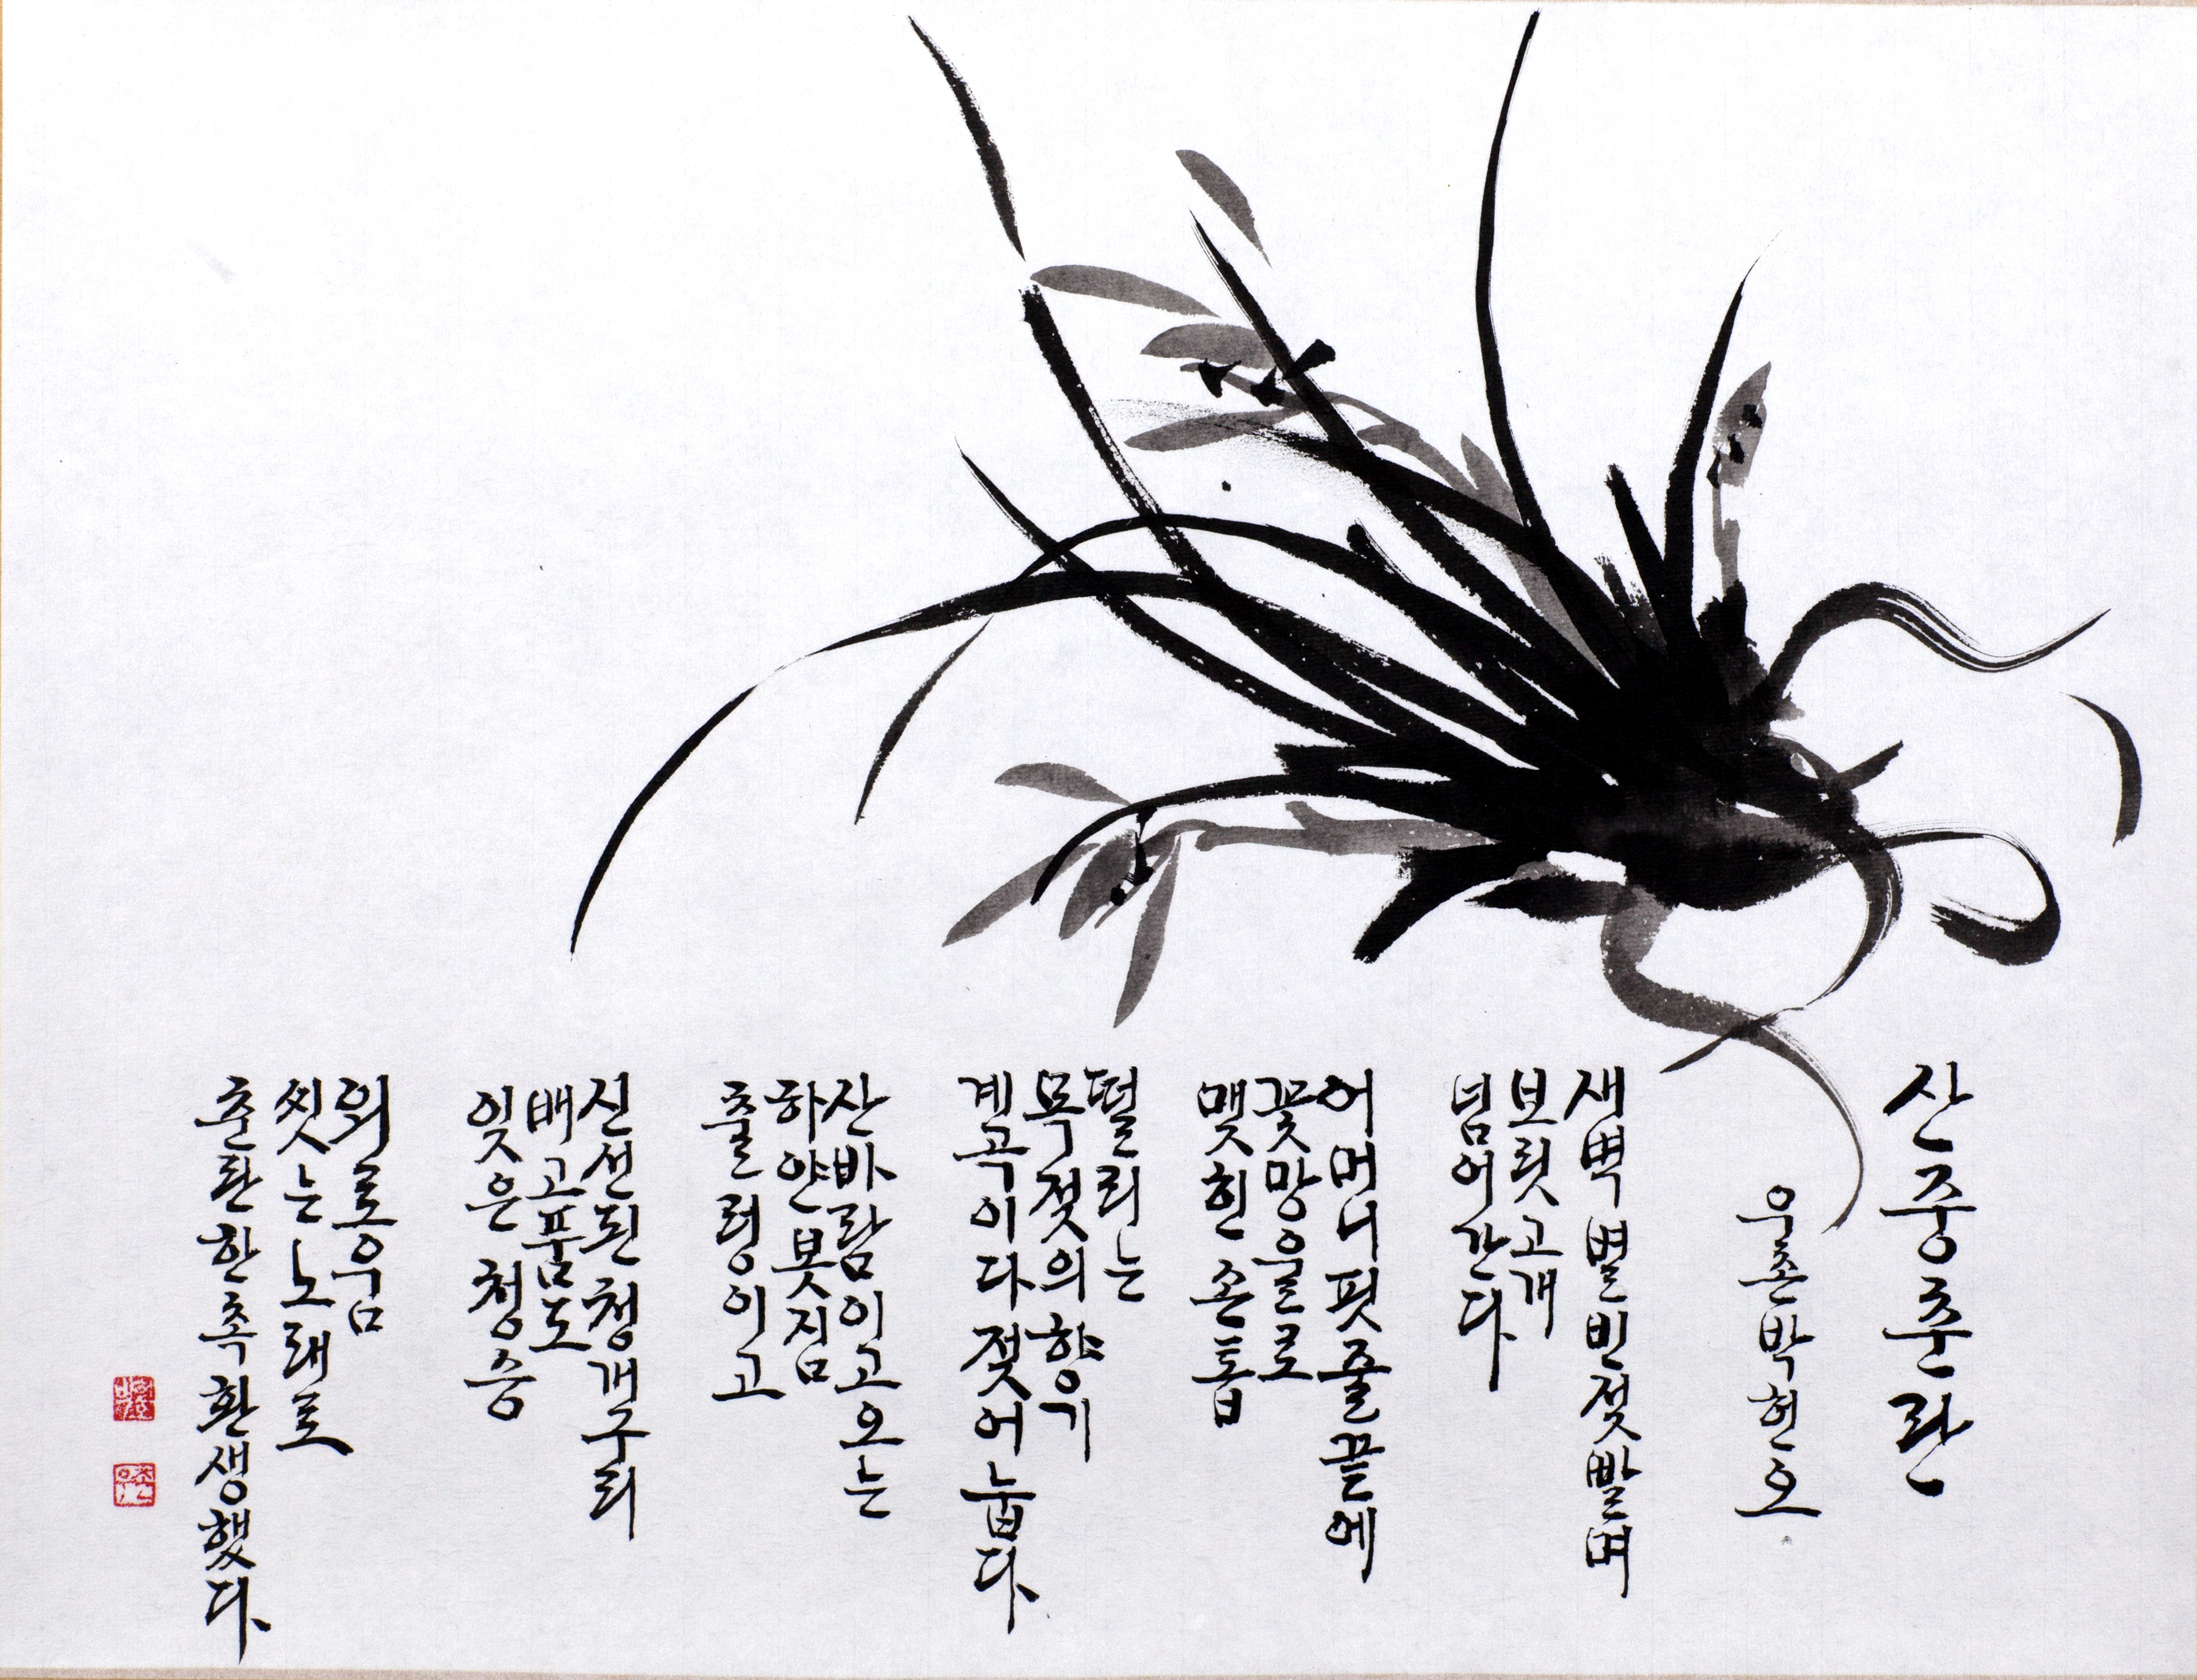 산중춘란
우촌 박현오
새벽 별 빈 젖 빨며
보릿고개
넘어간다
어머니 핏줄 끝에
꽃망울로
맺힌 손톱
떨리는
목젖의 향기
계곡이다 젖어 눕다
산바람 이고 오는
하얀 봇짐
출렁이고
신선된 청개구리
배고품도
잊은 청중
외로움
씻는 노래로
춘란 한 촉 환생했다